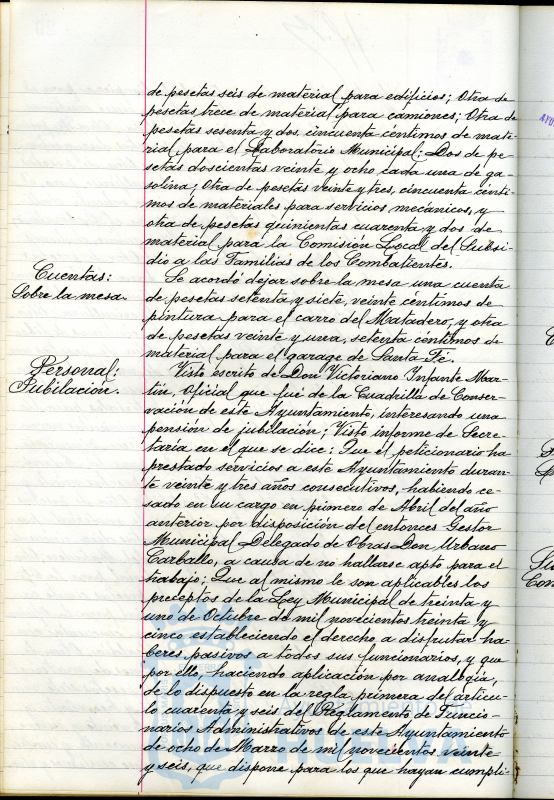 de pesetas seis de material para edificios; Otra de
pesetas trece de material para camiones; Otra de
pesetas sesenta y dos, cincuenta centimos de mate-
rial para el Laboratorio Municipal; Dos de pe-
setas doscientas veinte y ocho cada una de ga-
solina; Otra de pesetas veinte y tres, cincuenta centi-
mos de materiales para servicios mecánicos, y
otra de pesetas quinientas cuarenta y dos de
material para la Comisión Local del Subsi-
dio a las Familias de los Combatientes.
Cuentas:
Sobre la mesa.
Se acordo dejar sobre la mesa una cuenta
de pesetas setenta y siete, veinte centimos de
pintura para el carro del Matadero, y otra
de pesetas veinte y una, setenta centimos de
material para el garage de Santa Fé.
Personal:
Jubilación.
Visto escrito de Don Victoriano Infante Mar-
tin, Oficial que fué de la Cuadrilla de Conser-
vación de este Ayuntamiento, interesando una
pensión de jubilación; Visto informe de Secre-
taría en el que se dice: Que el peticionario ha
prestado servicios a este Ayuntamiento duran-
te veinte y tres años consecutivos, habiendo ce-
sado en su cargo en primero de Abril del año
anterior por disposición del entonces Gestor
Municipal Delegado de Obras Don Urbano
Carballo, a causa de no hallarse apto para el
trabajo; Que al mismo le son aplicables los
preceptos de la Ley Municipal de treinta y
uno de Octubre de mil novecientos treinta y
cinco estableciendo el derecho a disfrutar ha-
beres pasivos a todos sus funcionarios, y que
por ello, haciendo aplicación por analogía,
de lo dispuesto en la regla primera del articu-
lo cuarenta y seis del Reglamento de Funcio-
narios Administrativos de este Ayuntamiento
de ocho de Marzo de mil novecientos veinte
y seis, que dispone para los que hayan cumpli-